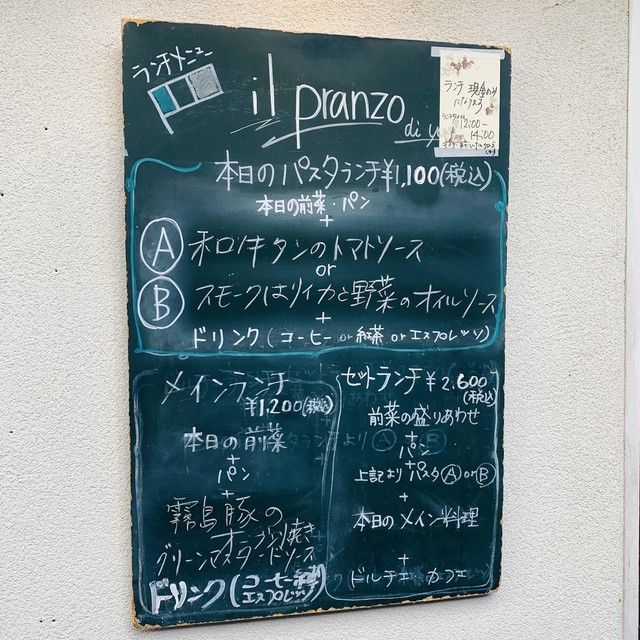 ランチメニュー
il pranzo
di
ランチ 現金のみ
になります
ランチタイム
12:00-
14:00
本日のパスタランチ¥1,100(税込)
本日の前菜・パン
+
Ⓐ 和牛タンのトマトソース
or
Ⓑ スモークはりイカと野菜のオイルソース
+
ドリンク(コーヒー or 紅茶 or エスプレッソ)
メインランチ
¥1,200(税込)
本日の前菜
+
パン
+
霧島豚の
オーブン焼き
グリーンマスタードソース
ドリンク(コーヒー 紅茶
エスプレッソ)
セットランチ¥2,600
(税込)
前菜の盛りあわせ
+
パン
+
上記より パスタⒶorⒷ
+
本日のメイン料理
+
ドルチェ カフェ